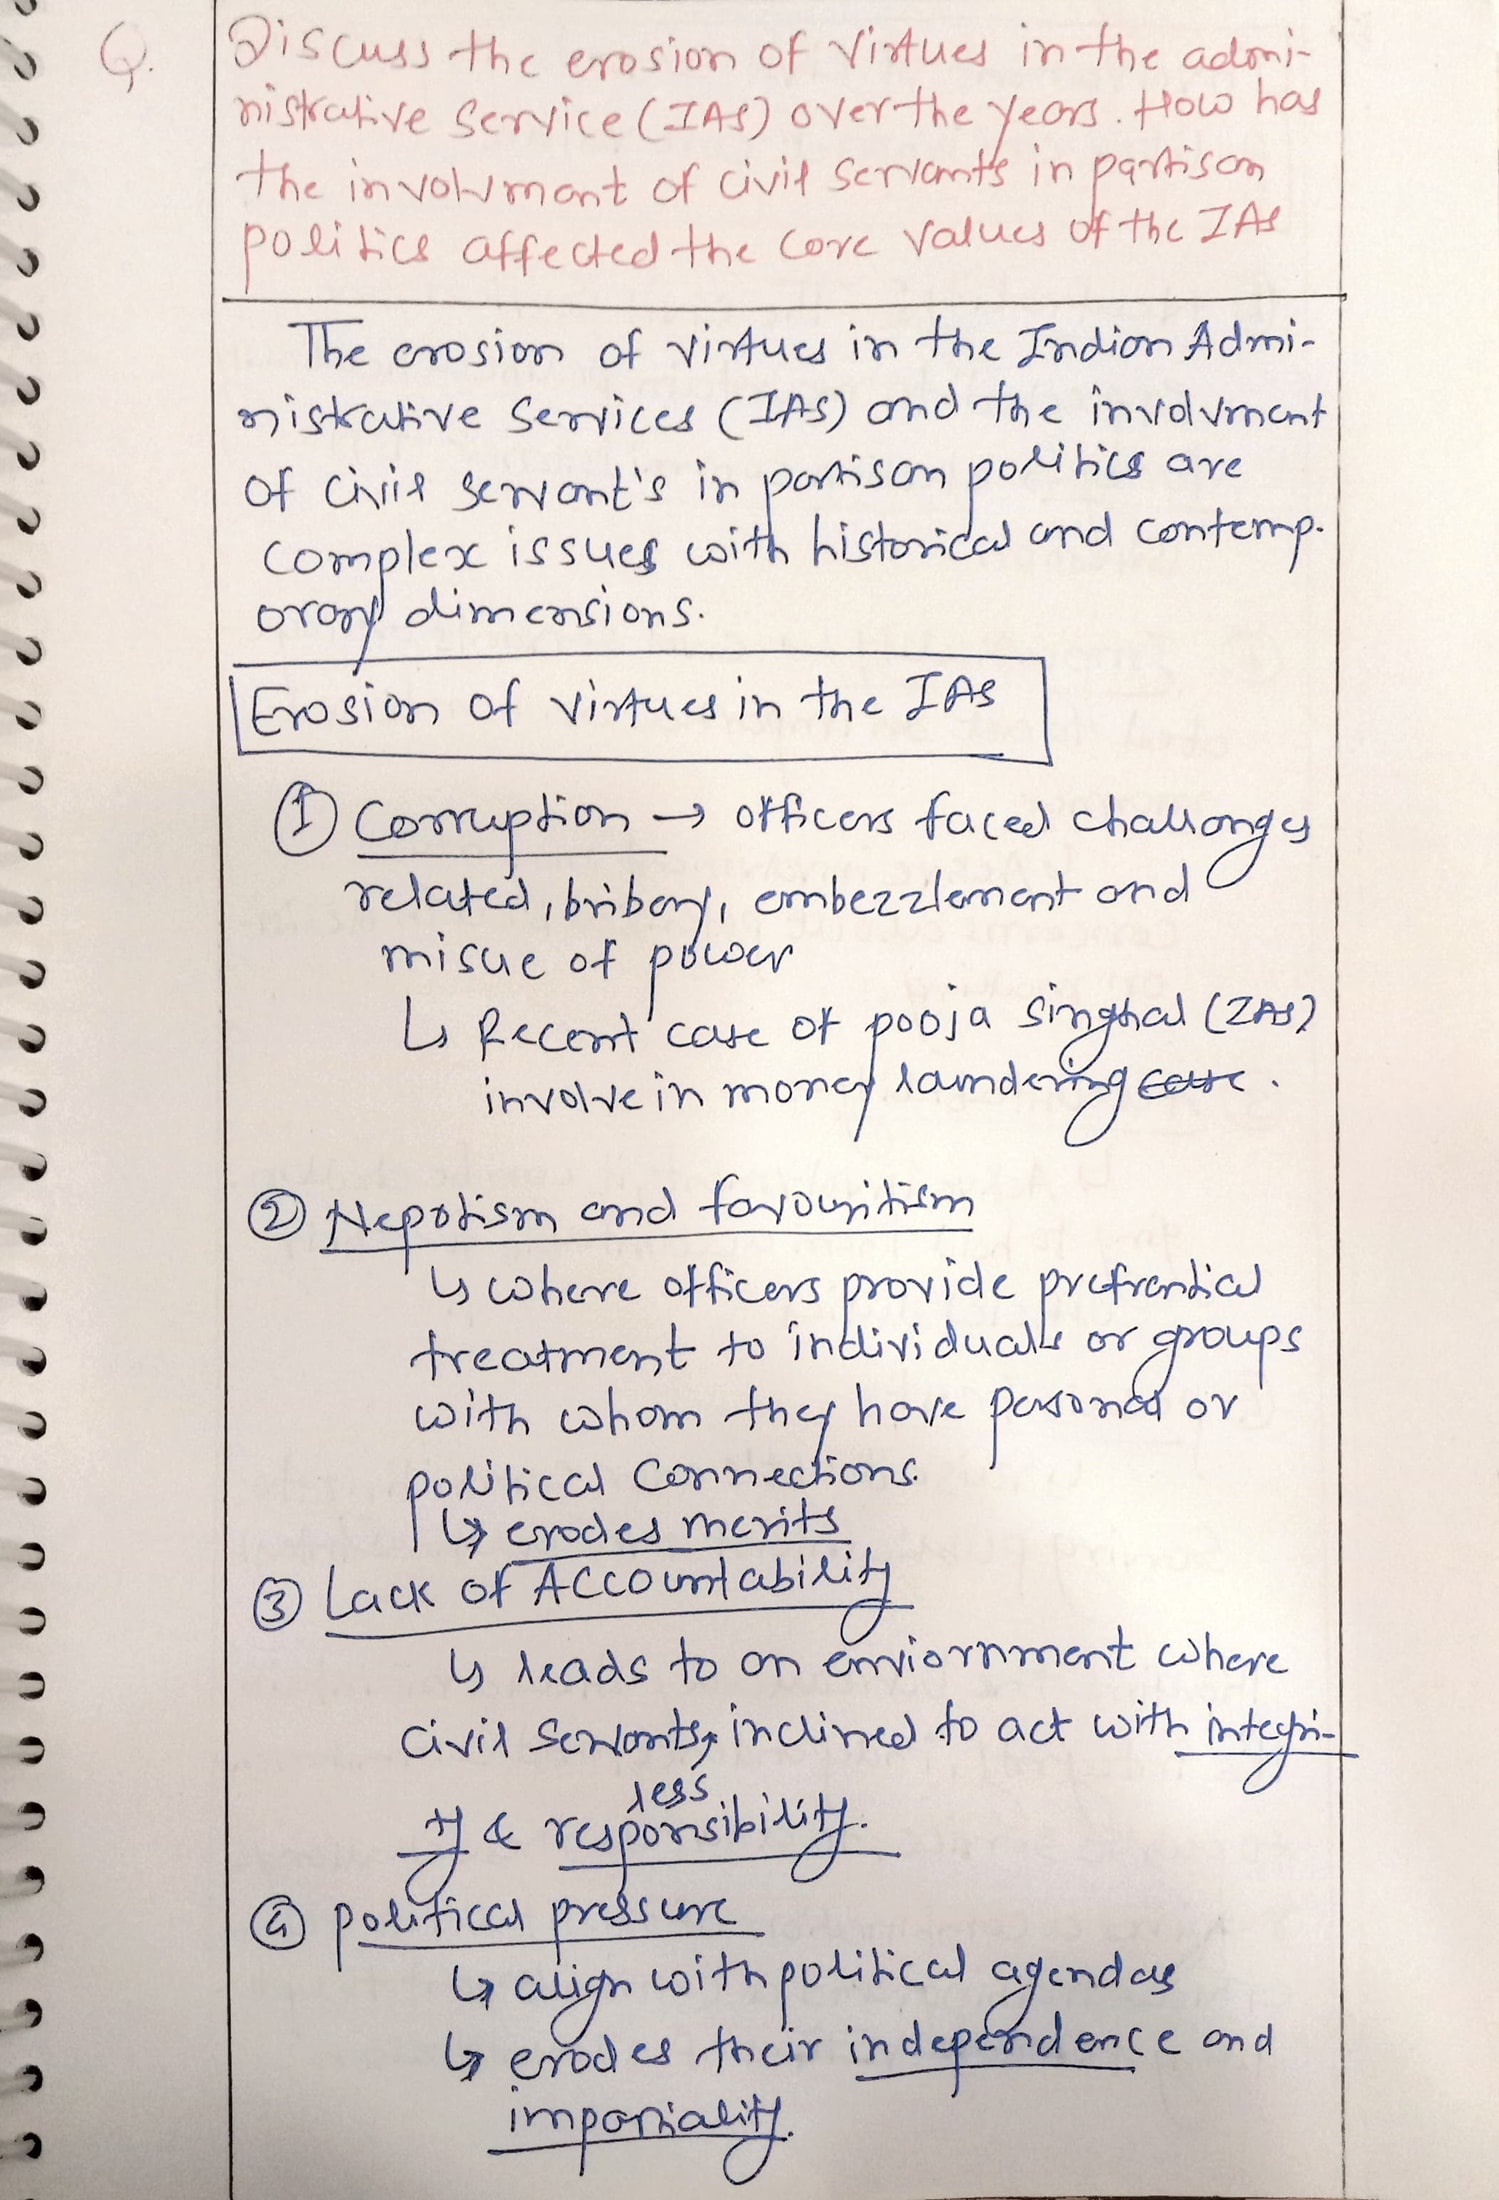 Q. Discuss the erosion of virtues in the admi-
nistrative Service (IAS) over the years. How has
the involvment of civil servants in partison
politics affected the core values of the IAS
The erosion of virtues in the Indian Admi-
nistrative Services (IAS) and the involvment
of civil servant's in partison politics are
complex issues with historical and contemp-
orary dimensions.
Erosion of virtues in the IAS
① Corruption → officers faced challanges
related, bribery, embezzlement and
misue of power
↳ Recent case of pooja singhal (IAS)
involve in money laundering case.
② Nepotism and favouritism
↳ where officers provide prefrential
treatment to individuals or groups
with whom they have personal or
political connections.
↳ erodes merits
③ Lack of Accountability
↳ leads to an enviornment where
civil servants, inclined to act with integri-
less
ty & responsibility.
④ political pressure
↳ align with political agendas
↳ erodes their independence and
impartiality.